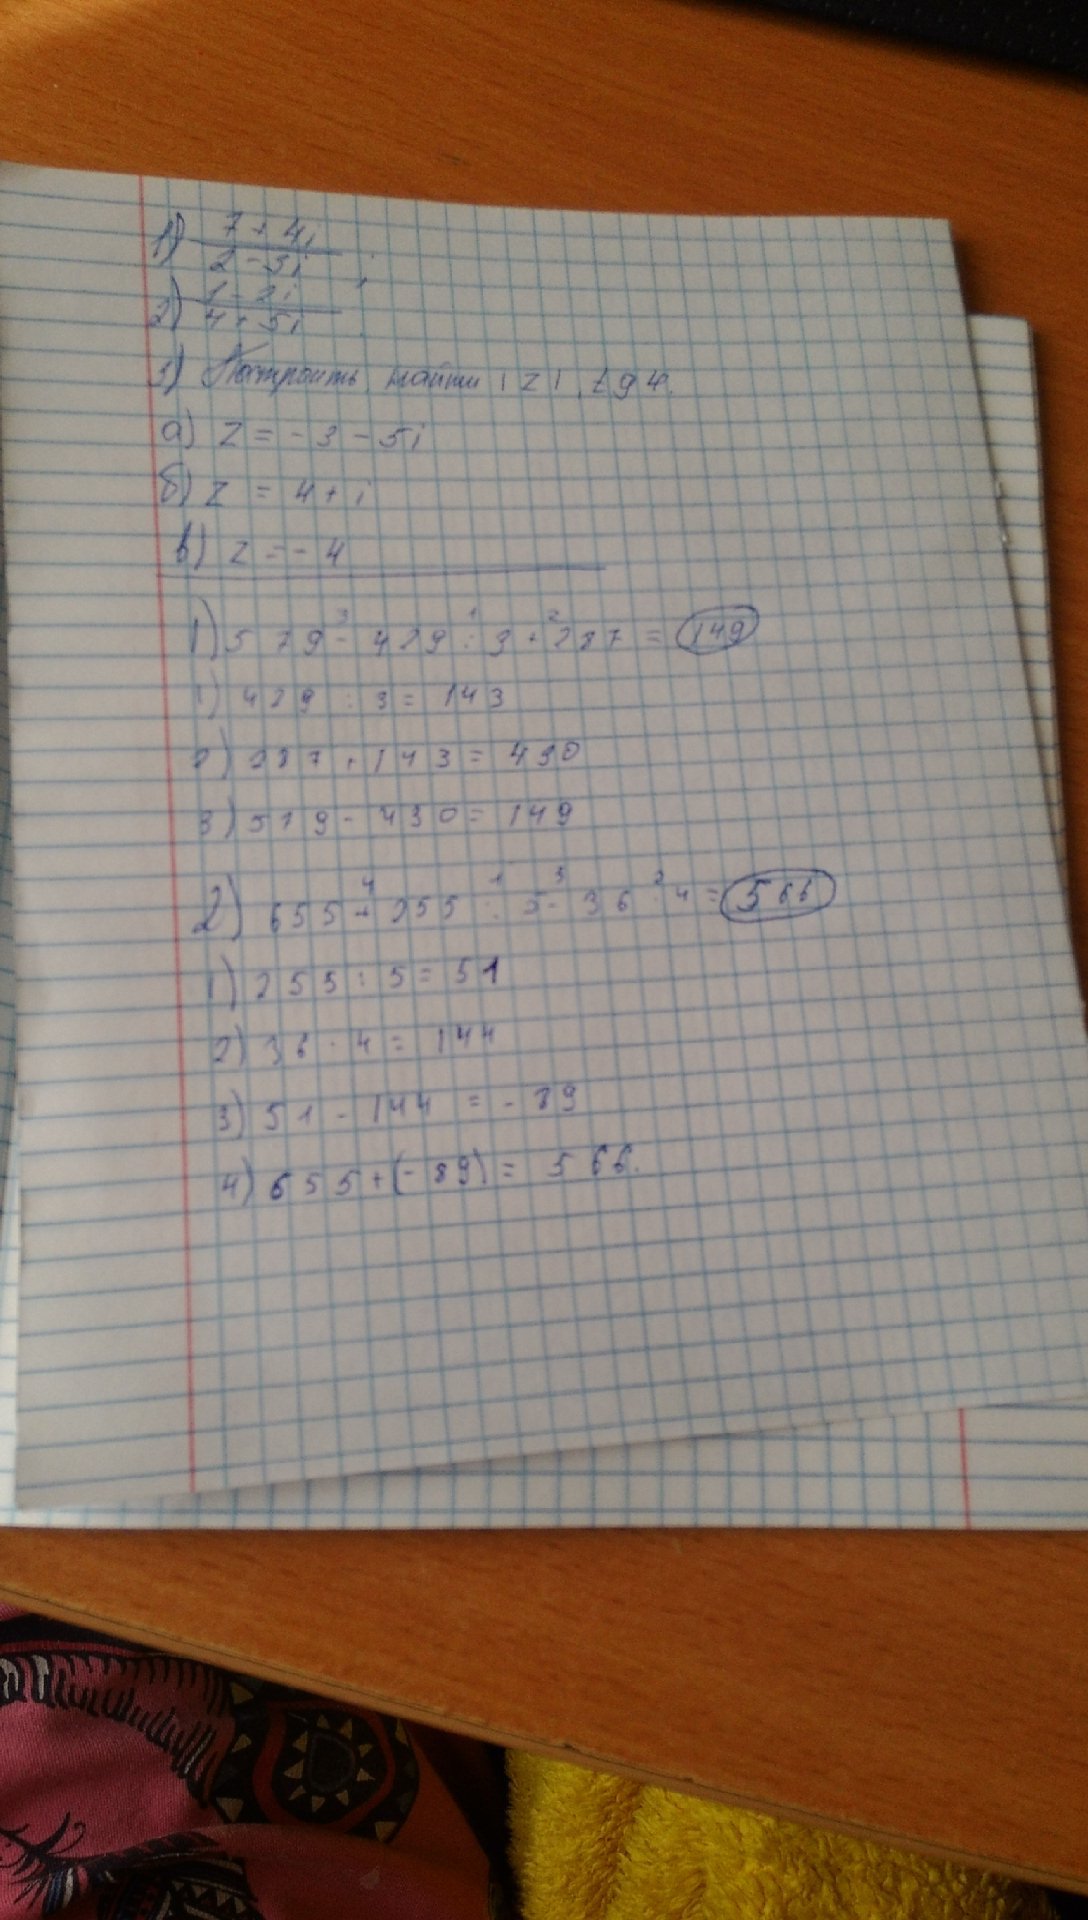 1) 7 + 4i / 2 - 5i ;
2) 1 - 2i / 4 + 5i
3) Построить, найти |z|, tgφ.
а) z = - 3 - 5i
б) z = 4 + i
в) z = - 4
1) 579 - 429 : 3 + 287 = 149
1) 429 : 3 = 143
2) 287 + 143 = 430
3) 579 - 430 = 149
2) 655 + 255 : 5 - 36 · 4 = 566
1) 255 : 5 = 51
2) 36 · 4 = 144
3) 51 - 144 = - 89
4) 655 + (- 89) = 566.